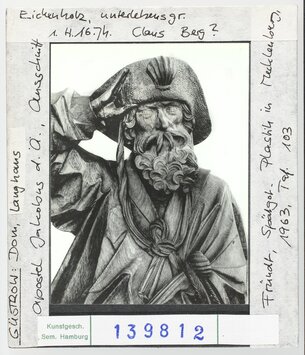 Eichenholz, unterlebensgr.
1. H. 16. Jh. Claus Berg?
GÜSTROW: Dom, Langhaus
Apostel Jakobus d. Ä., Ausschnitt
Fründt, Spätgot. Plastik in Mecklenburg,
1963, Taf. 103
Kunstgesch.
Sem. Hamburg
139812